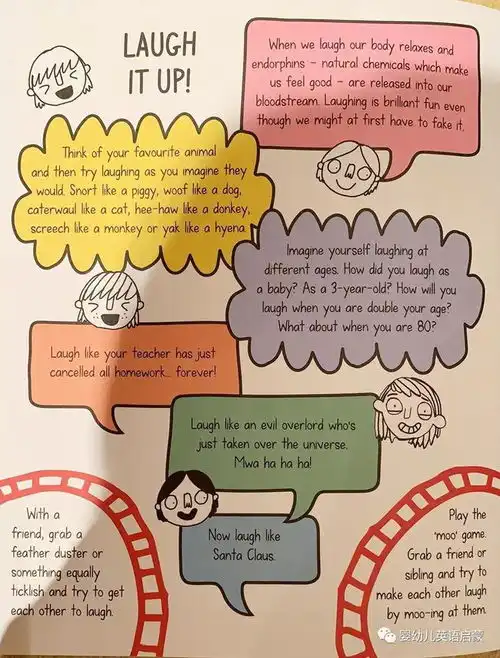 LAUGH
IT UP!
When we laugh our body relaxes and
endorphins – natural chemicals which make
us feel good – are released into our
bloodstream. Laughing is brilliant fun even
though we might at first have to fake it.
Think of your favourite animal
and then try laughing as you imagine they
would. Snort like a piggy, woof like a dog,
caterwaul like a cat, hee-haw like a donkey,
screech like a monkey or yak like a hyena
Imagine yourself laughing at
different ages. How did you laugh as
a baby? As a 3-year-old? How will you
laugh when you are double your age?
What about when you are 80?
Laugh like your teacher has just
cancelled all homework... forever!
Laugh like an evil overlord who's
just taken over the universe.
Mwa ha ha ha!
Now laugh like
Santa Claus.
With a
friend, grab a
feather duster or
something equally
ticklish and try to get
each other to laugh.
Play the
'moo' game.
Grab a friend or
sibling and try to
make each other laugh
by moo-ing at them.
婴幼儿英语启蒙